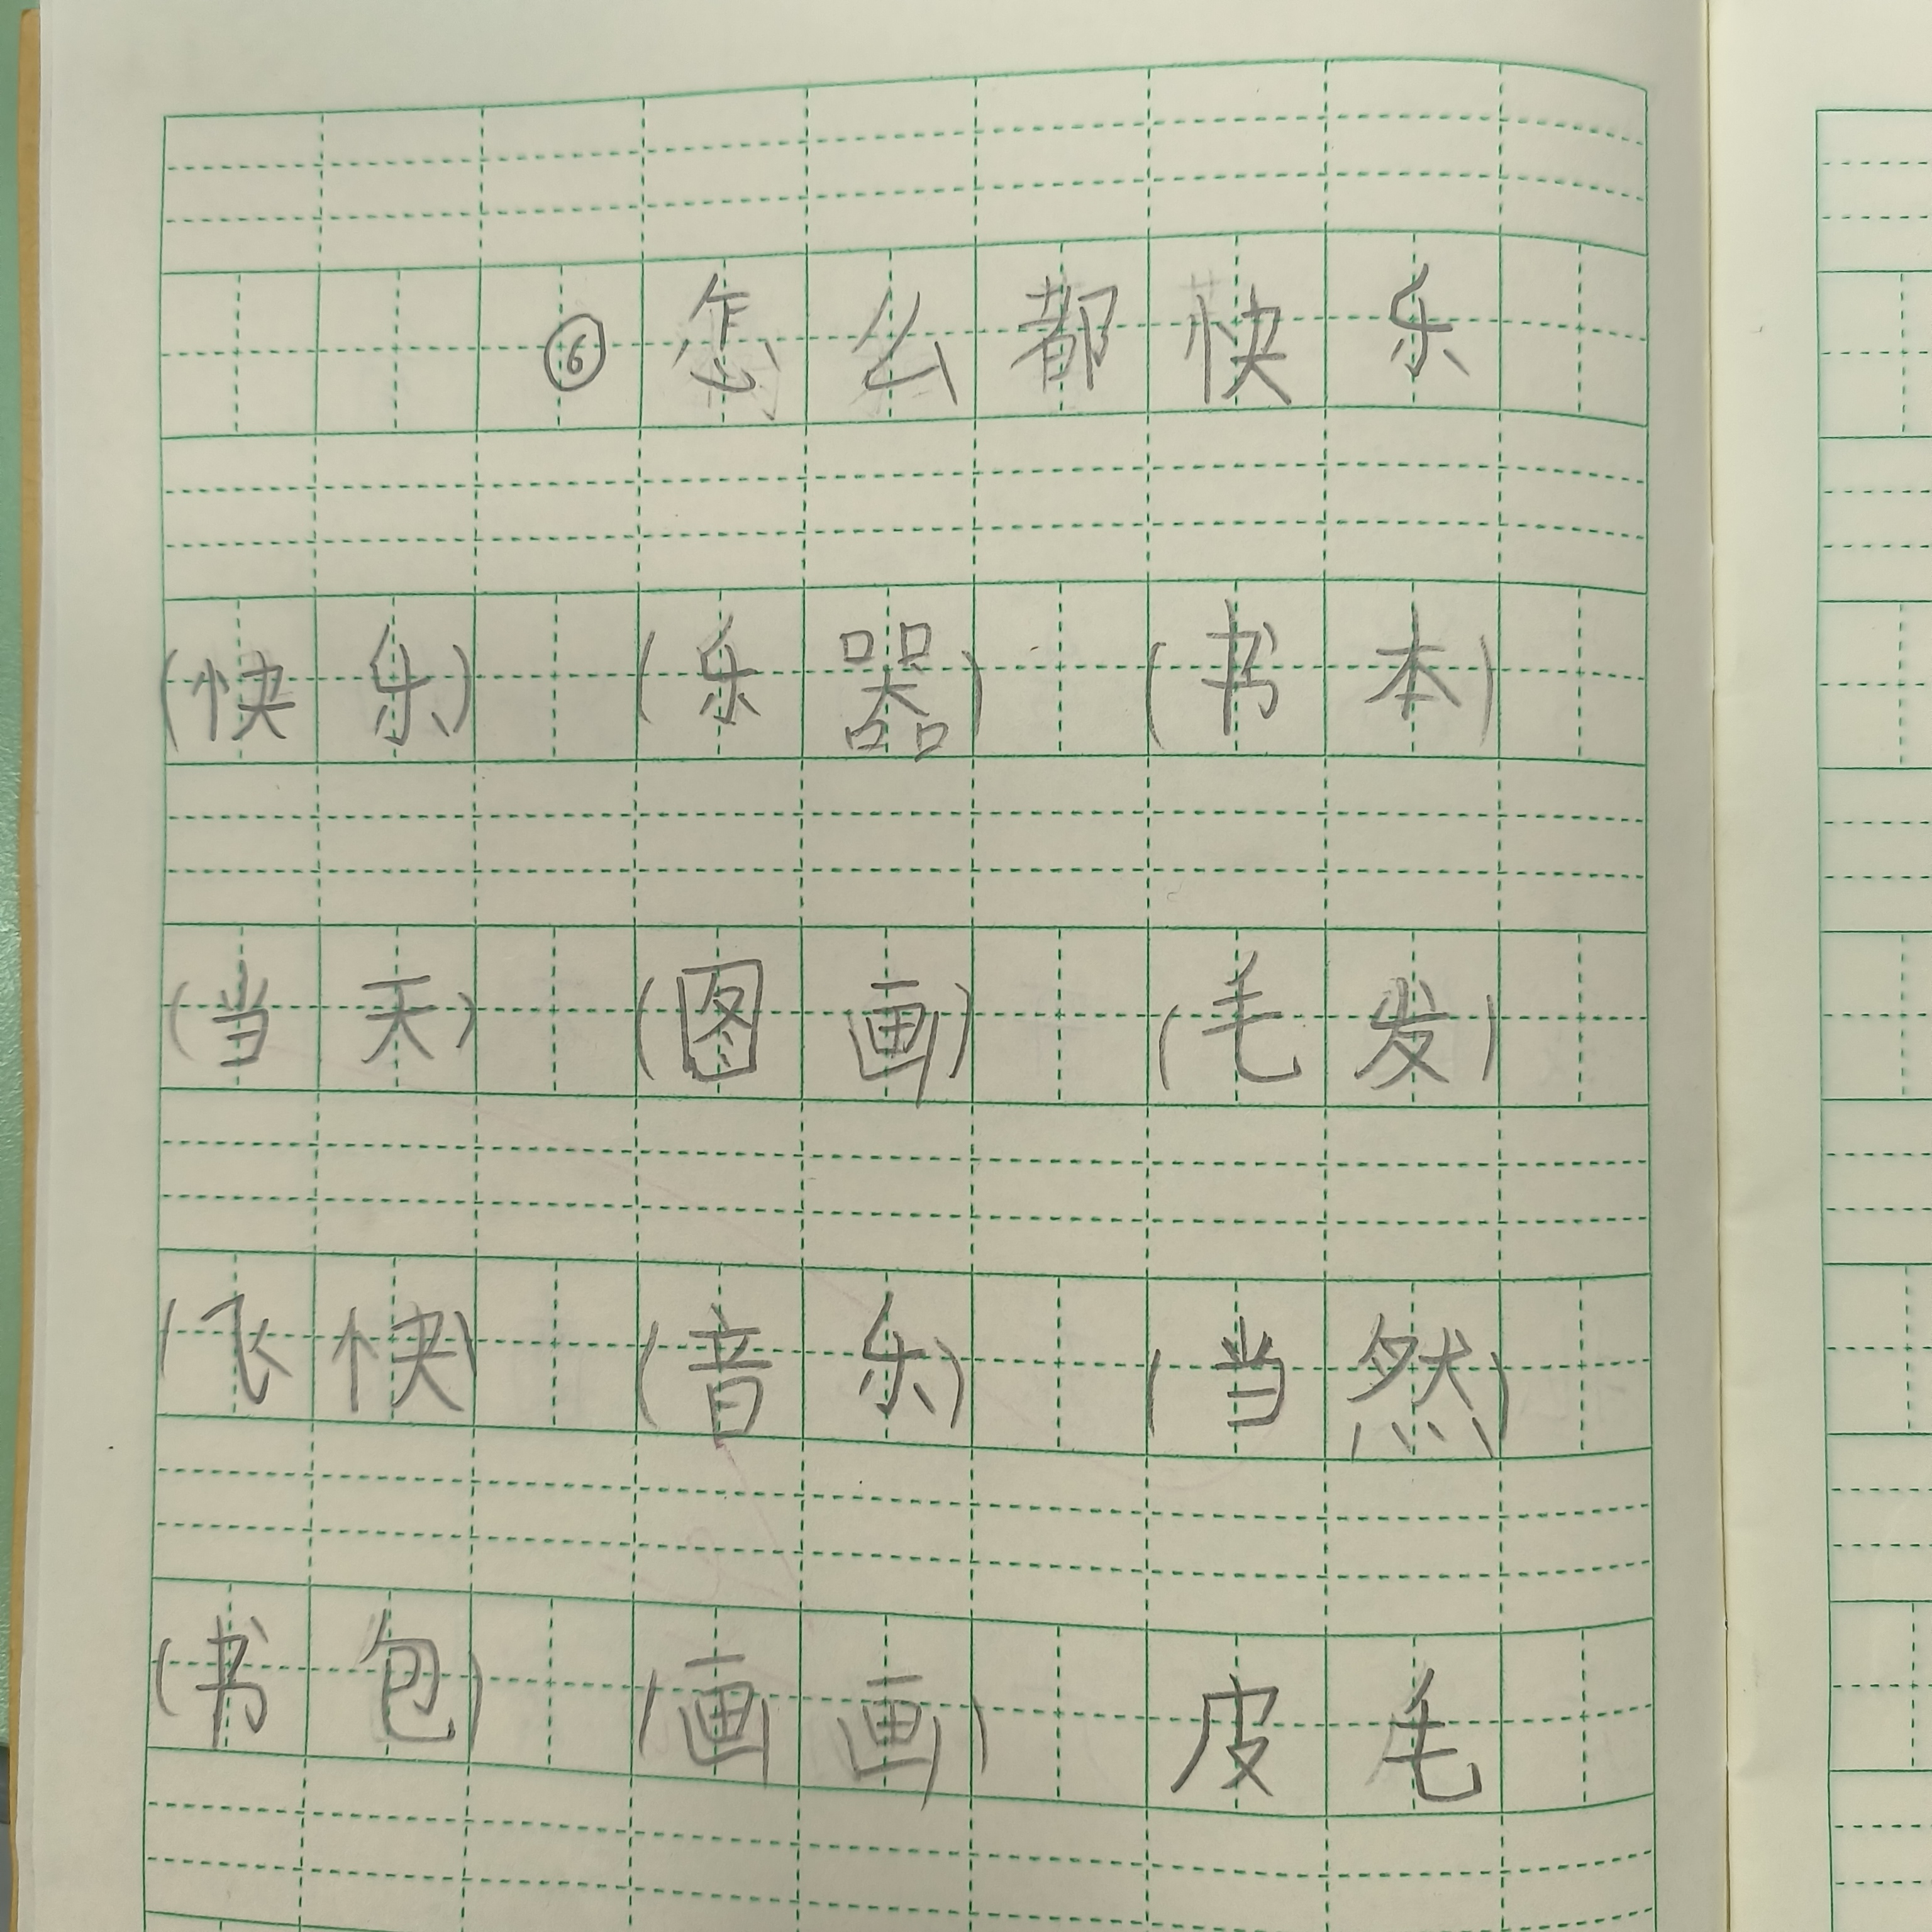 ⑥怎么都快乐
(快乐) (乐器) (书本)
(当天) (图画) (毛发)
(飞快) (音乐) (当然)
(书包) (画画) 皮毛